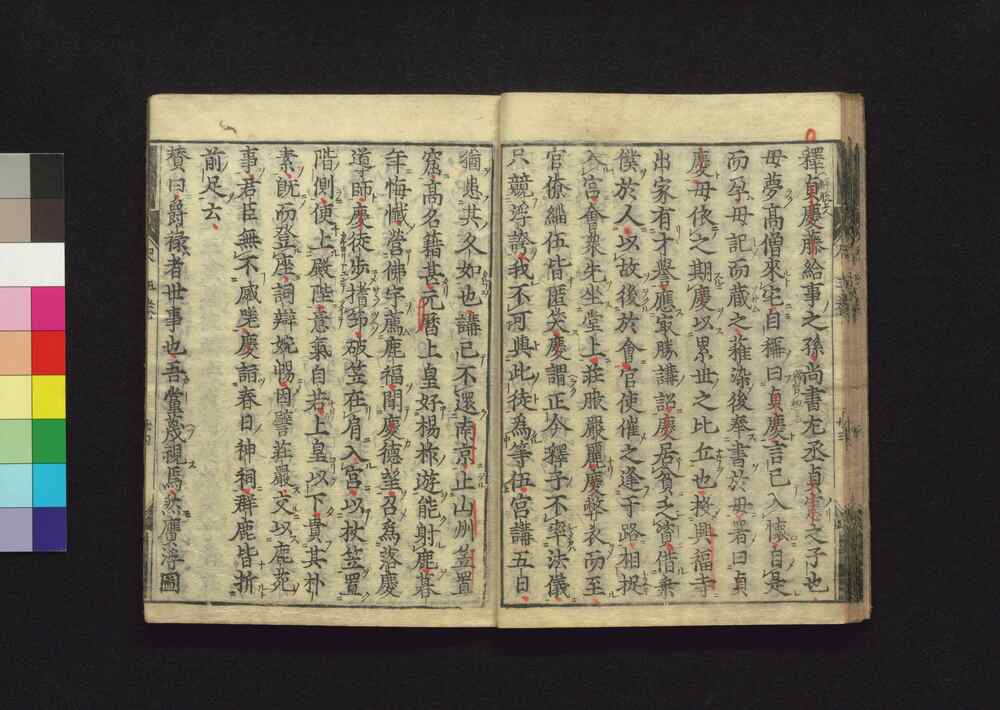 釋貞慶藤給事之孫尚書左丞貞憲之子也
母夢高僧來宅自稱曰貞慶言已入懷自是
而孕母記而藏之薙染後奉書於母署曰貞
慶母依之期慶以累世之比丘也投興福寺
出家有才譽應最勝講詔慶居貧乏資借乘
僕於人以故後於會官使催之逢于路相捉
入宮會眾先坐堂上莊服嚴麗慶弊衣而至
官僚緇伍皆匿笑慶謂正今釋子不率法儀
只競浮誇我不可與此徒為等伍宮講五日
猶患其久如也講已不還南京止山州笠置
窟高名藉甚元曆上皇好楊柞遊能射鹿暮
年悔懺營佛宇薦鹿福聞慶德望召為落慶
導師慶徒步揩笻破笠在肩入宮以杖笠置
階側使上殿陛意氣自若上皇以下貴其朴
素既而登座詞辯婉暢因譬莊嚴文以鹿苑
事君臣無不感嗟慶詣春日神祠群鹿皆折
前足云
贊曰爵祿者世事也吾黨蔑視焉然澆浮圖